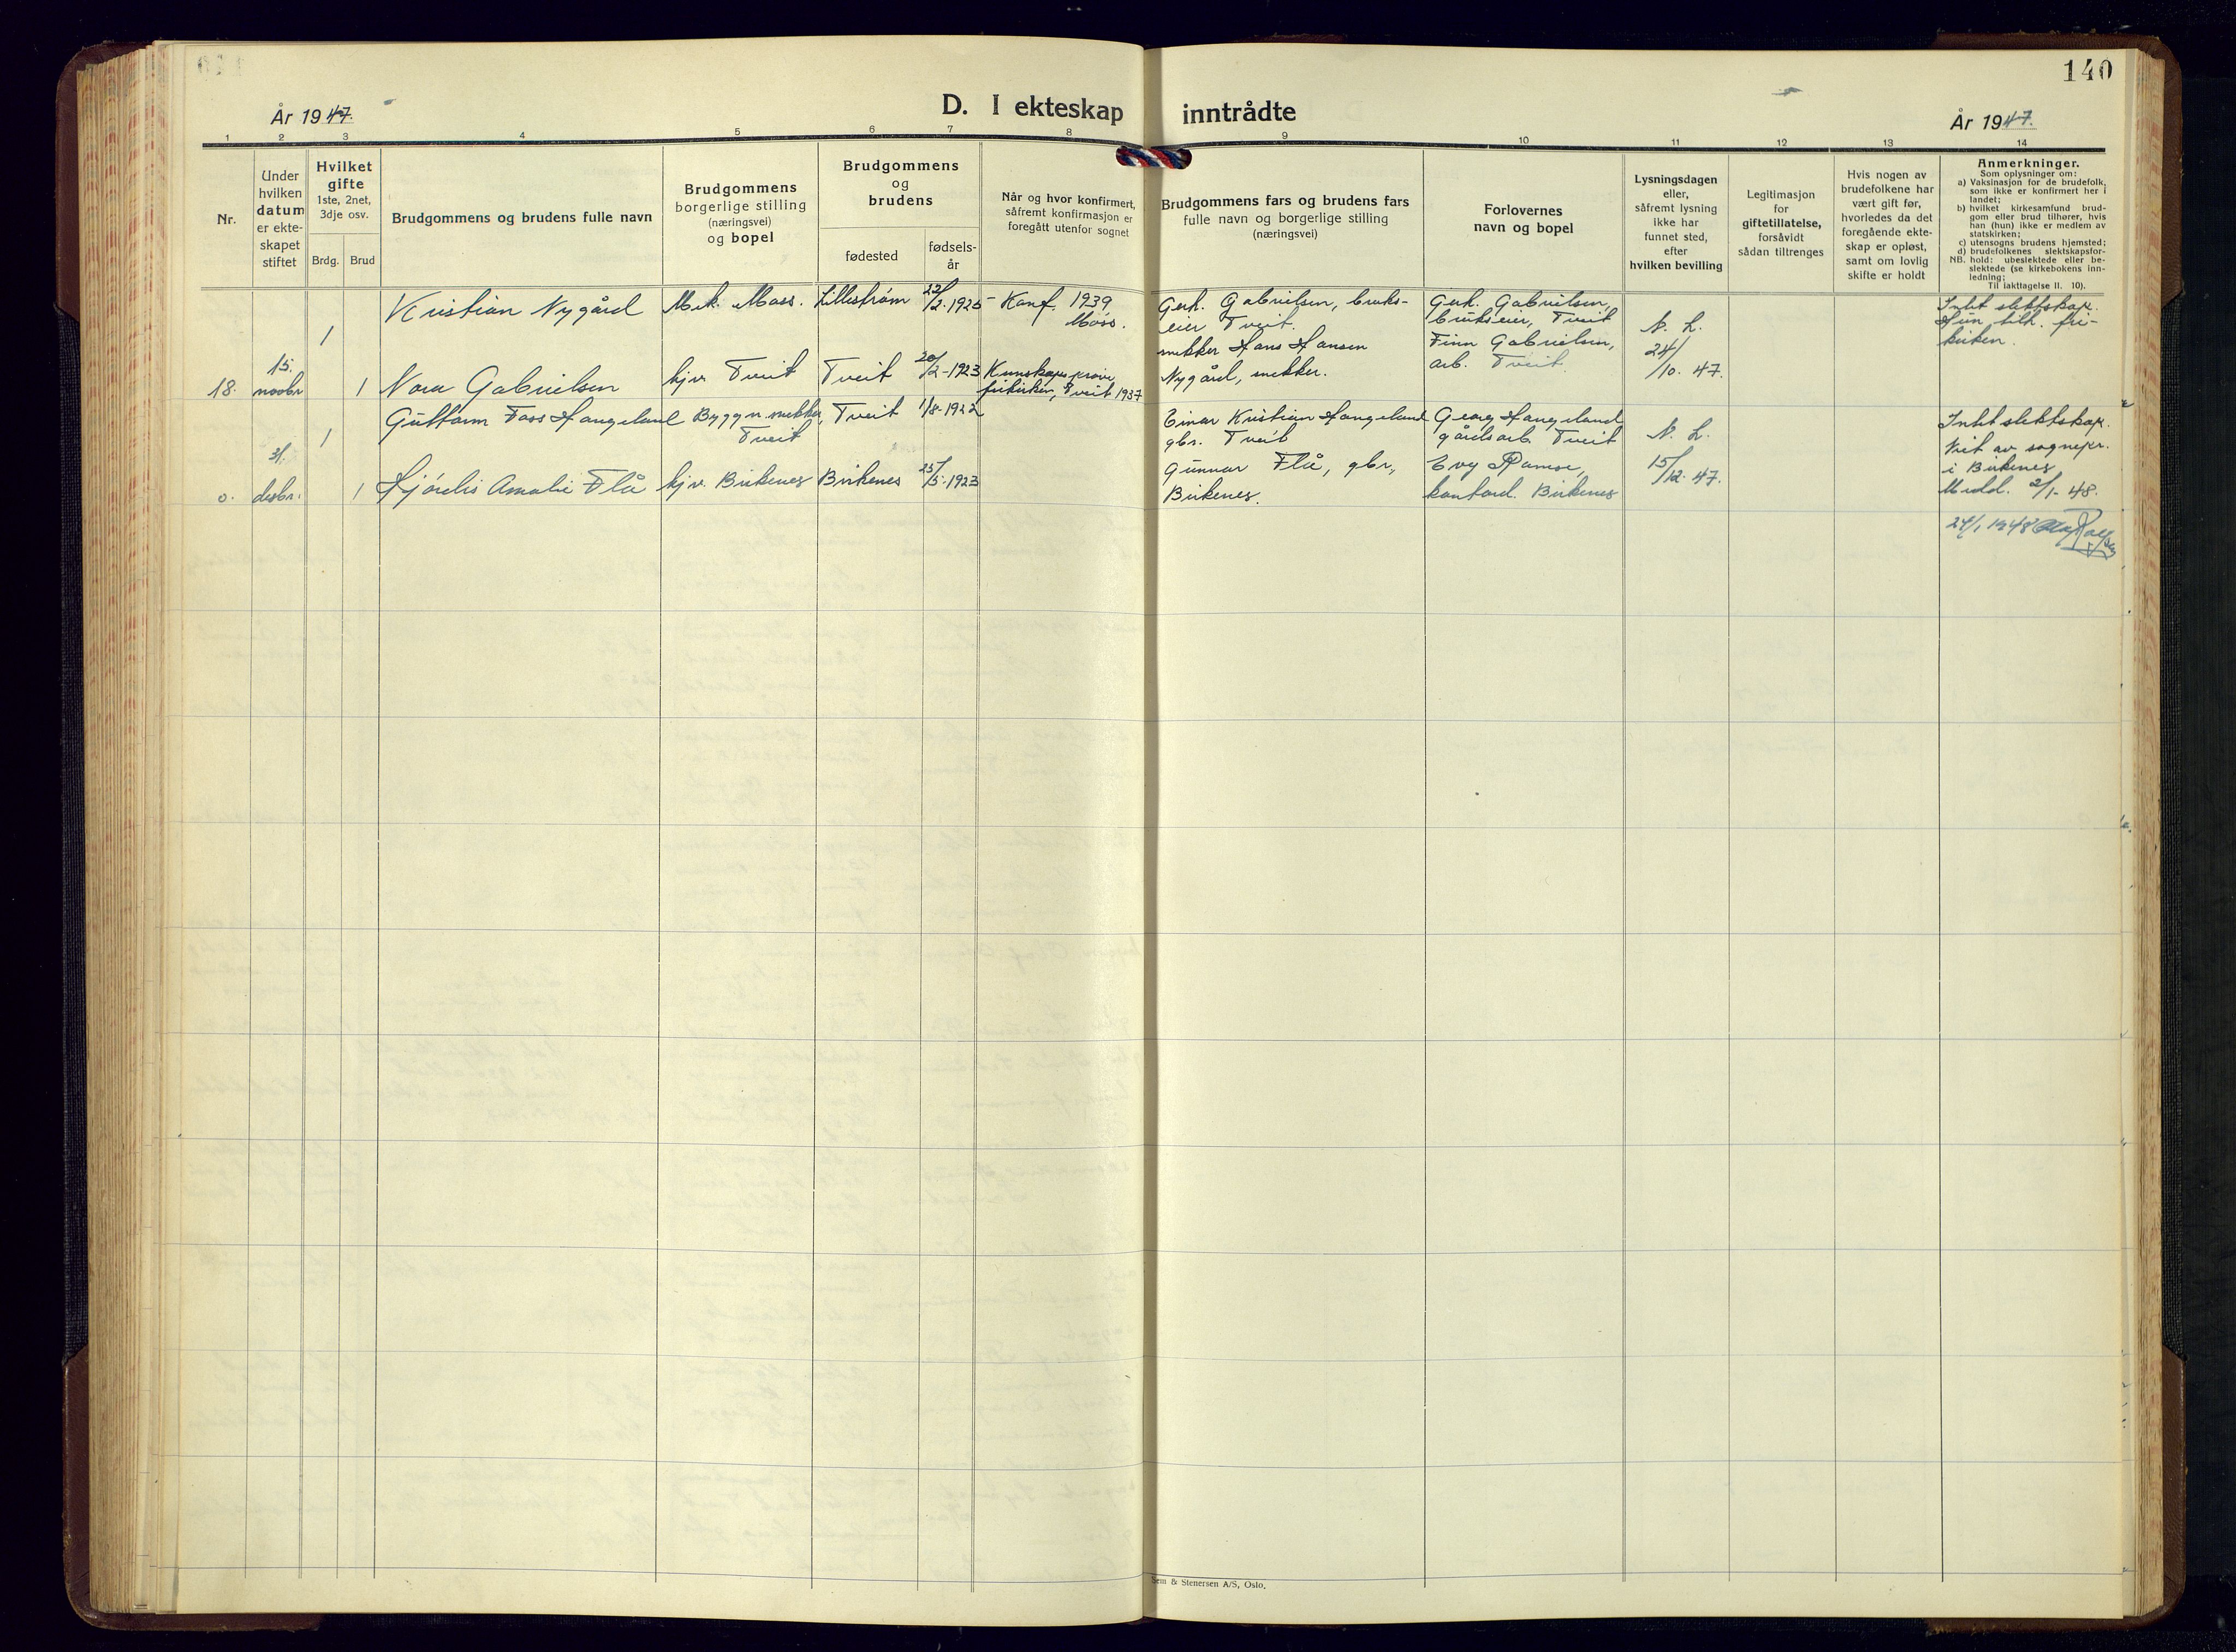 140
År 1947.
D. I ekteskap inntrådte
År 1947.
1 2 3 4 5 6 7 8 9 10 11 12 13 14
Nr.
Under
hvilken
datum
er ekte-
skapet
stiftet
Hvilket
gifte
1ste, 2net,
3dje osv.
Brdg. Brud
Brudgommens og brudens fulle navn
Brudgommens
borgerlige stilling
(næringsvei)
og bopel
Brudgommens
og
brudens
fødested
fødsels-
år
Når og hvor konfirmert,
såfremt konfirmasjon er
foregått utenfor sognet
Brudgommens fars og brudens fars
fulle navn og borgerlige stilling
(næringsvei)
Forlovernes
navn og bopel
Lysningsdagen
eller,
såfremt lysning
ikke har
funnet sted,
efter
hvilken bevilling
Legitimasjon
for
giftetillatelse,
forsåvidt
sådan tiltrenges
Hvis nogen av
brudefolkene har
vært gift før,
hvorledes da det
foregående ekte-
skap er opløst,
samt om lovlig
skifte er holdt
Anmerkninger.
Som oplysninger om:
a) Vaksinasjon for de brudefolk,
som ikke er konfirmert her i
landet;
b) hvilket kirkesamfund brud-
gom eller brud tilhører, hvis
han (hun) ikke er medlem av
statskirken;
c) utensogns brudens hjemsted;
d) brudefolkenes slektskapsfor-
NB. hold: ubeslektede eller be-
slektede (se kirkebokens inn-
ledning;
Til iakttagelse II. 10).
18.
15.
novbr
1
Kristian Nygård
Mek. Moss.
Lillestrøm
22/2-1925
Konf. 1939
Moss.
1
Nora Gabrielsen
hjv. Tveit
Tveit
20/2-1923
Kunskapsprøve
frikirken, Tveit 1937
Gerh. Gabrielsen, bruks-
eier Tveit.
snekker Hans Hansen
Nygård, snekker.
Gerh. Gabrielsen,
brukseier, Tveit
Finn Gabrielsen,
arb. Tveit.
N. L.
24/
/10. 47.
Intet slektskap.
Hun tilh. fri-
kirken.
o.
31.
desbr.
1
Guttorm Foss Hangeland
Byggn.snekker,
Tveit
Tveit
1/8-1922
1
Hjördis Amalie Flå
hjv. Birkenes
Birkenes
25/5-1923
Einar Kristian Hangeland
gbr. Tveit
Gunnar Flå, gbr,
Birkenes.
Georg Hangeland
gårdsarb. Tveit
Evy Ramse,
kontord. Birkenes
N. L.
15/
/12. 47.
Intet slektskap.
Viet av sognepr.
i Birkenes
Meld. 2/1-48.
24/1 1948
Sem & Stenersen A/S, Oslo.